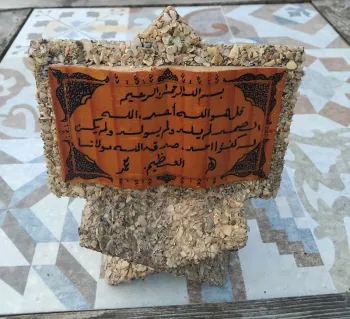 بسم الله الرحمن الرحيم
قل هو الله أحد الله
الصمد لم يلد ولم يولد ولم يكن
له كفوا احد صدق الله مولانا
العظيم